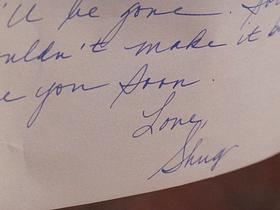 'll be gone. So
uldn't make it
e you soon.
Love,
Shug